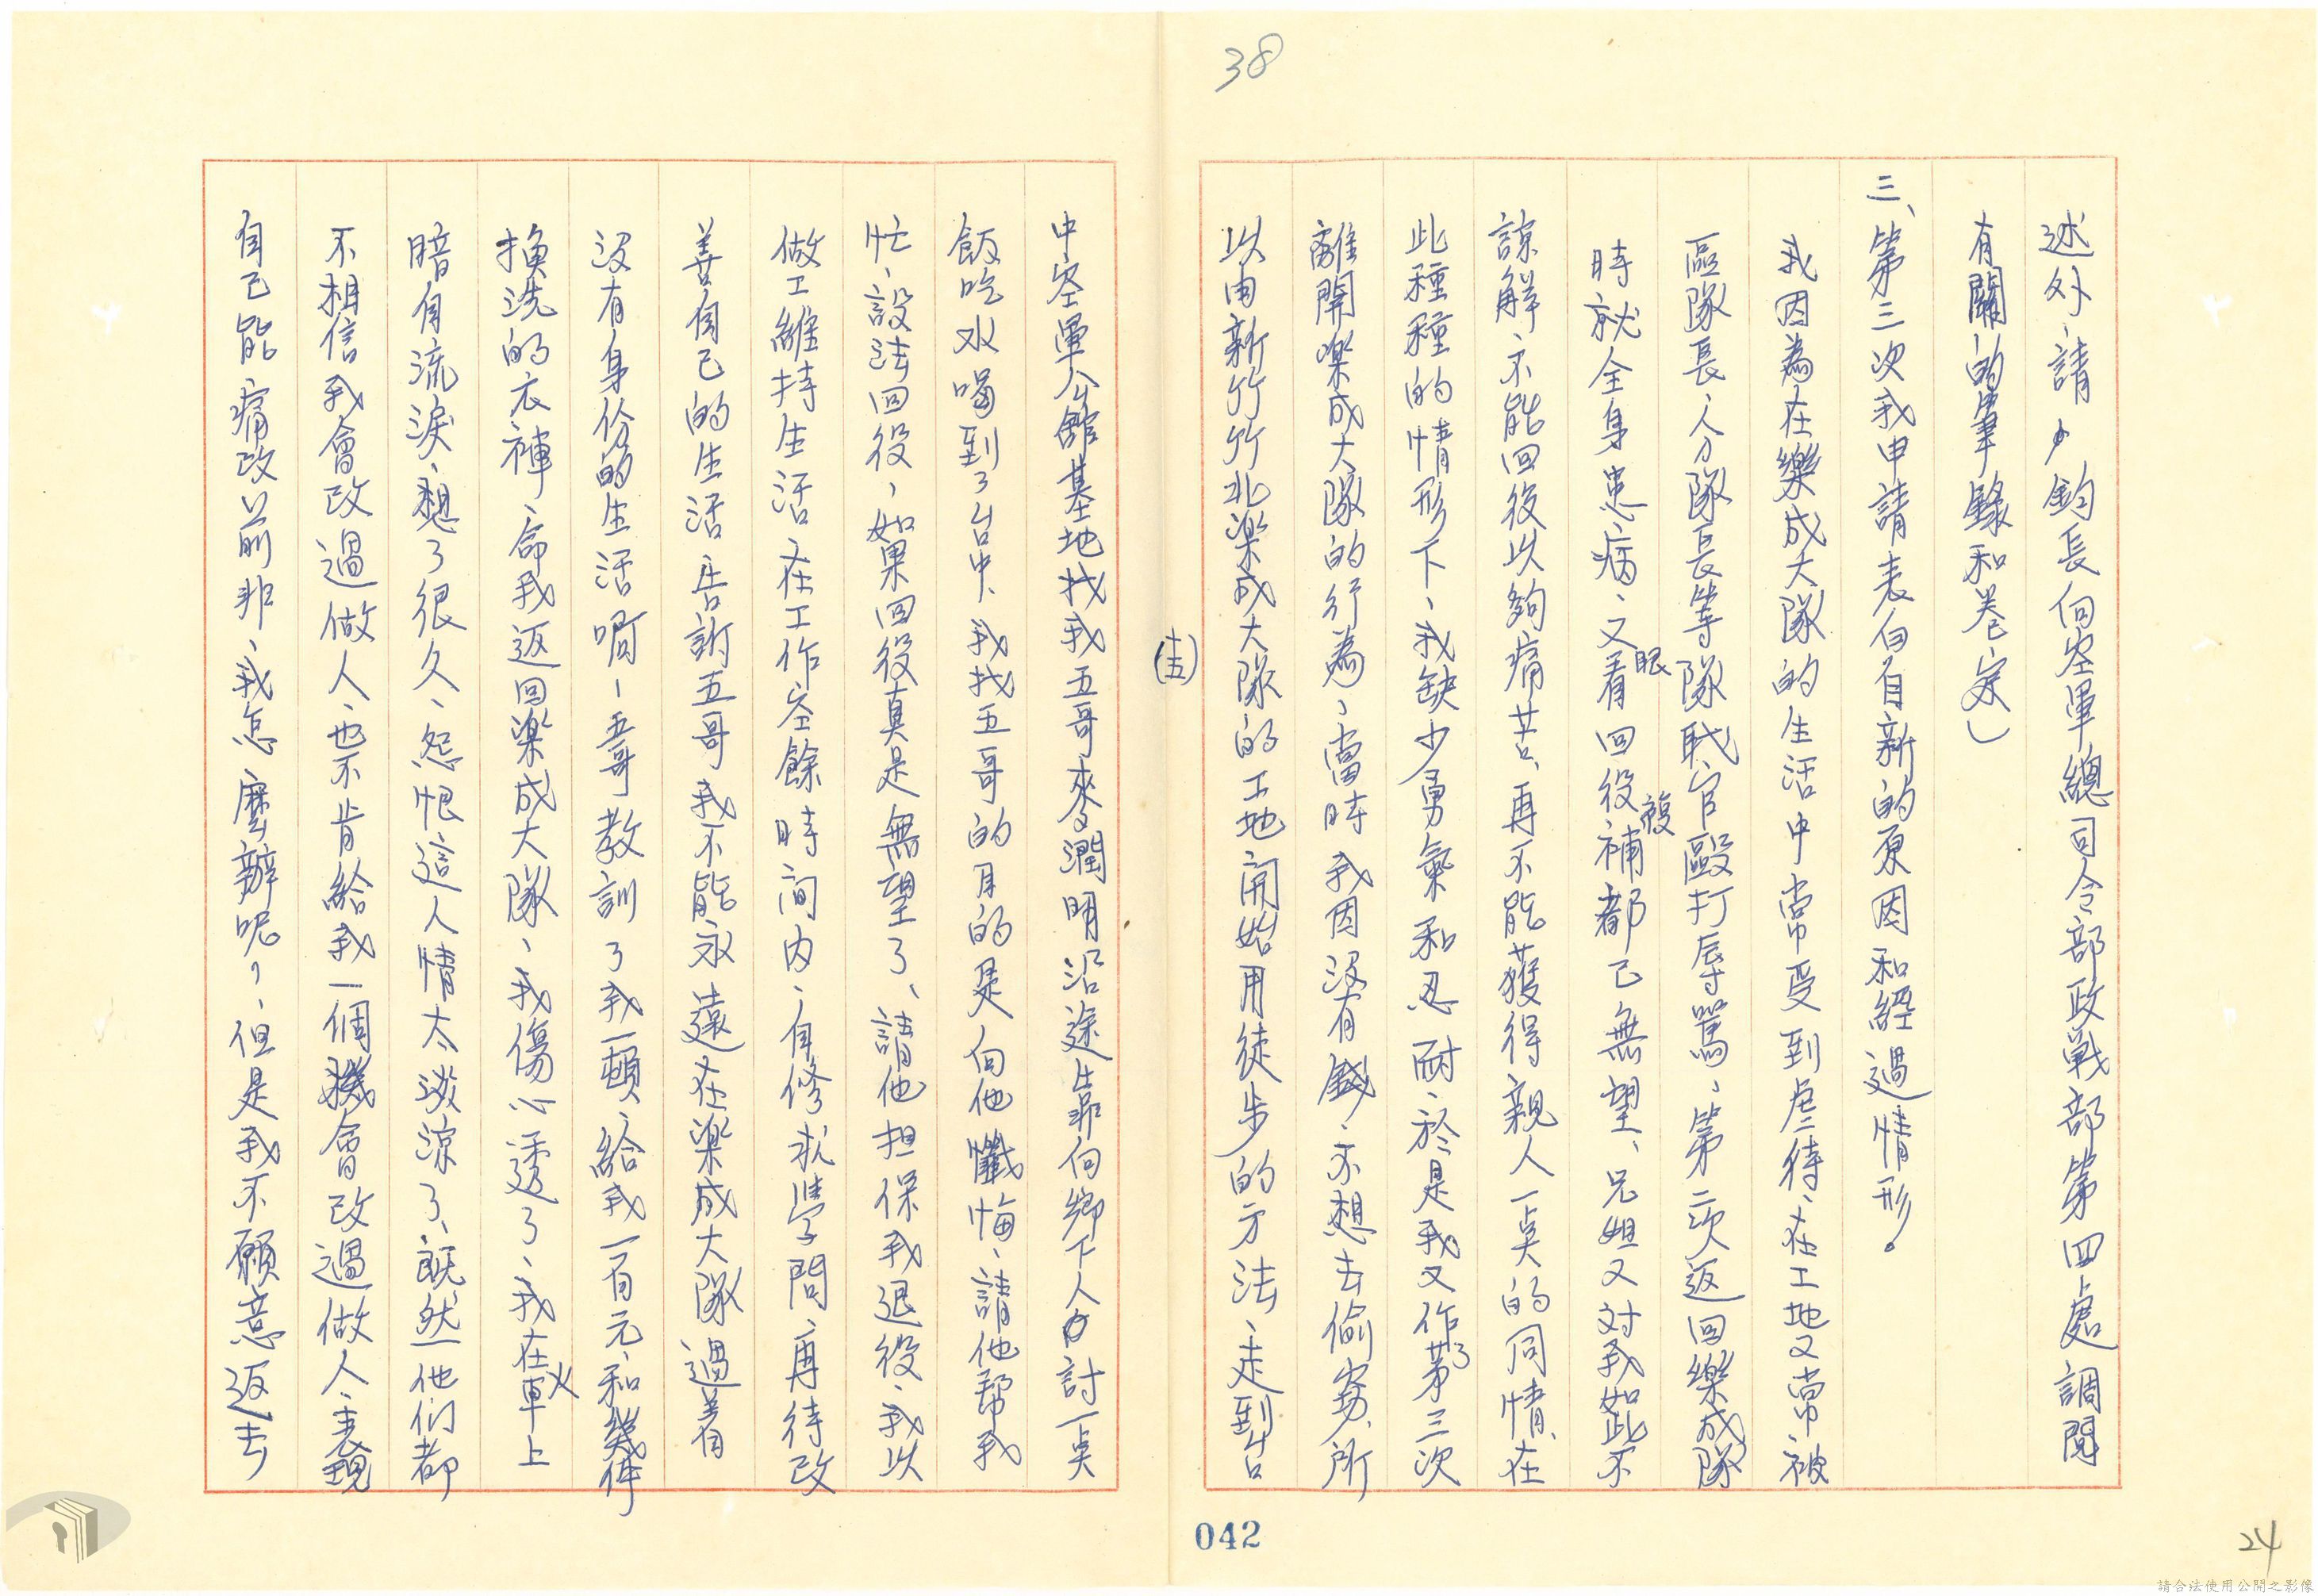 38
述外、請鈞長向空軍總司令部政戰部第四處調閱
有關的筆錄和卷宗)
三、第三次我申請表白自新的原因和經過情形。
我因為在樂成大隊的生活中常受到虐待、在工地又常被
區隊長、人分隊長等隊職官毆打辱罵、第二次返回樂成隊
時就全身患病、又看眼回役復補都已無望、兄姐又對我如此不
諒解、不能回役以夠痛苦、再不能獲得親人一點的同情、在
此種種的情形下、我缺少勇氣和忍耐、於是我又作了第三次
離開楽成大隊的行為、當時我因沒有錢、不想去偷竊、所
以由新竹竹北楽成大隊的工地開始用徒步的方法、走到台
(十五)
中空軍公館基地找我五哥麥潤明沿途靠向鄉下人討一點
飯吃水喝到了台中、我找五哥的目的是向他懺悔、請他幫我
忙、設法回役、如果回役真是無望了、請他担保我退役、我以
做工維持生活在工作空餘時间內、自修求進學問、再待改
善自己的生活告訴五哥我不能永遠在楽成大隊過着
沒有身份的生活啊!五哥教訓了我一頓、給我一百元、和幾件
換洗的衣褲、命我返回楽成大隊、我傷心透了、我在火車上
暗自流淚、想了很久、怨恨這人情太淡涼了、既然他们都
不相信我會改過做人、也不肯給我一個機會改過做人、表現
自己能痛改以前非、我怎麼辦呢?、但是我不願意返去
042
24
請合法使用公開之影像